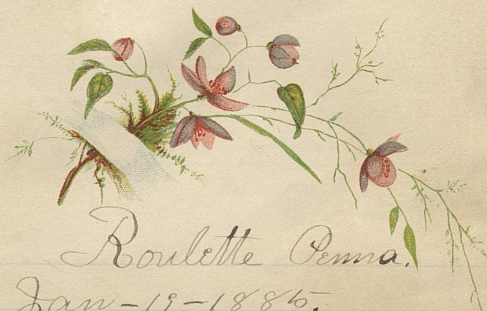 Roulette Penna.
Jan - 19 - 1885.